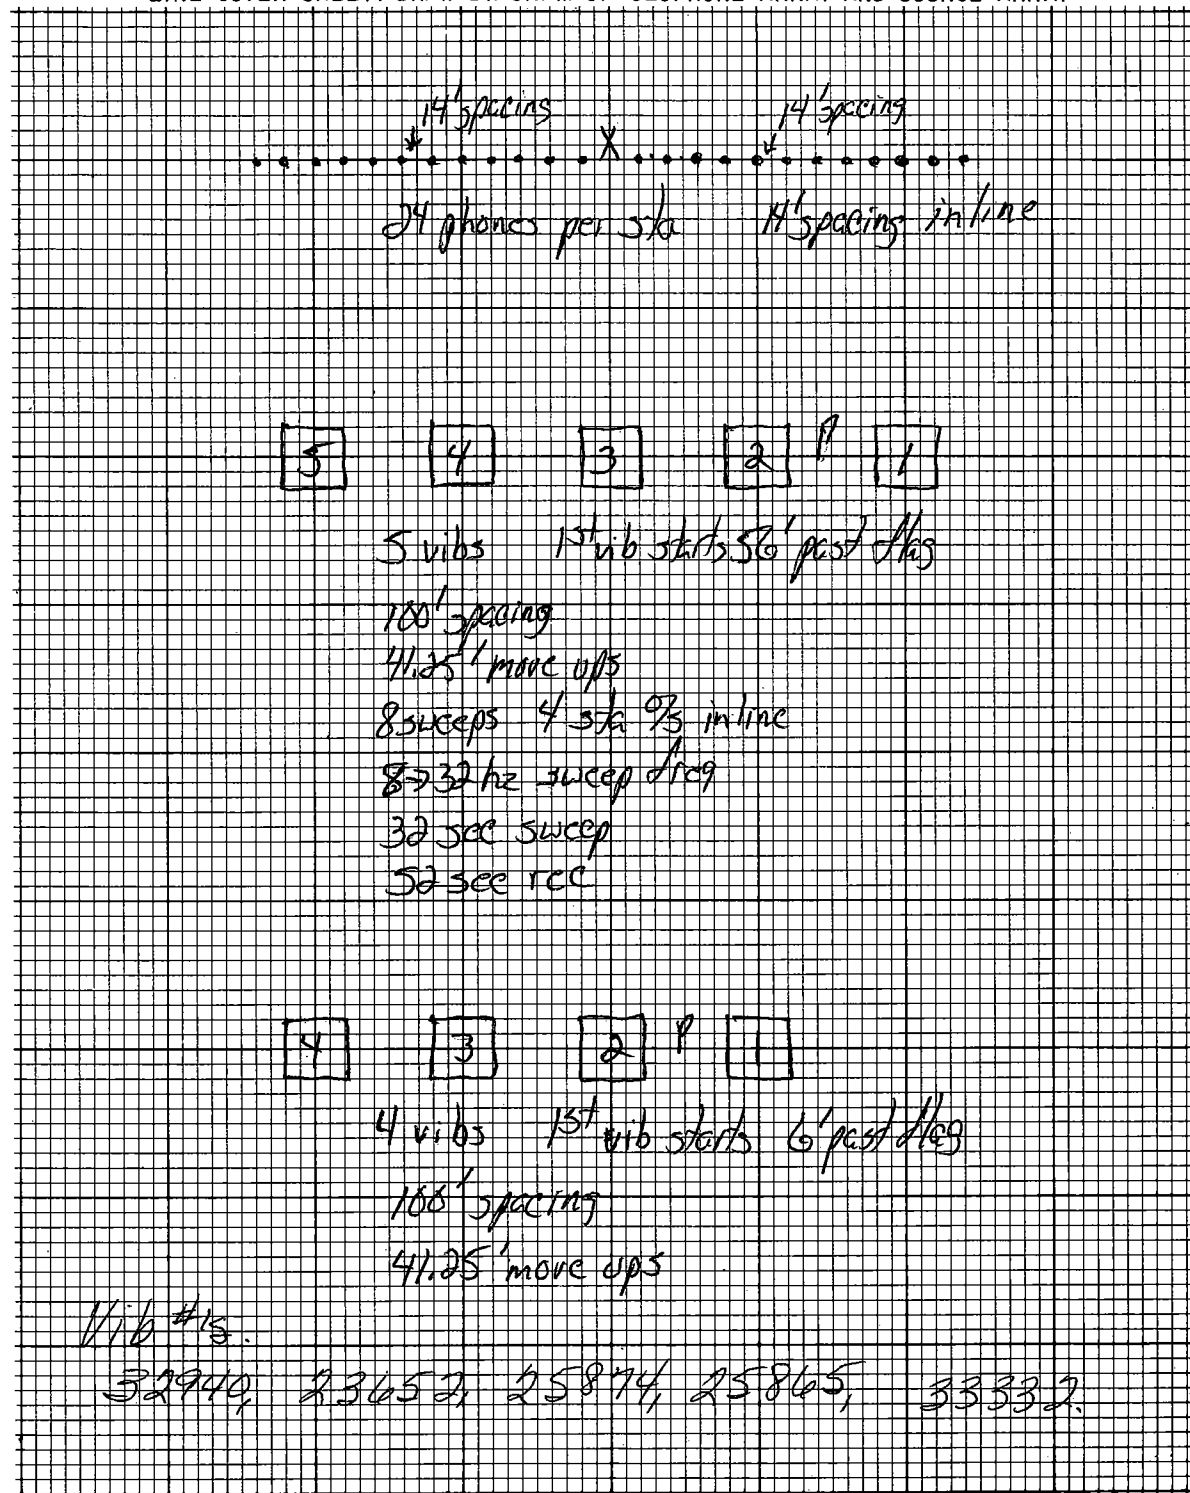 14' spacing 14' spacing
X
24 phones per sta 14' spacing inline
5 4 3 2 1
5 vibs 1st vib starts 56' past flag
100' spacing
41.25' move ups
8 sweeps 4 sta o/s inline
8→32 hz sweep freq
32 sec sweep
52 sec rec
4 3 2 1
4 vibs 1st vib starts 6' past flag
100' spacing
41.25' move ups
Vib #'s.
32940, 23652, 25874, 25865, 33332.